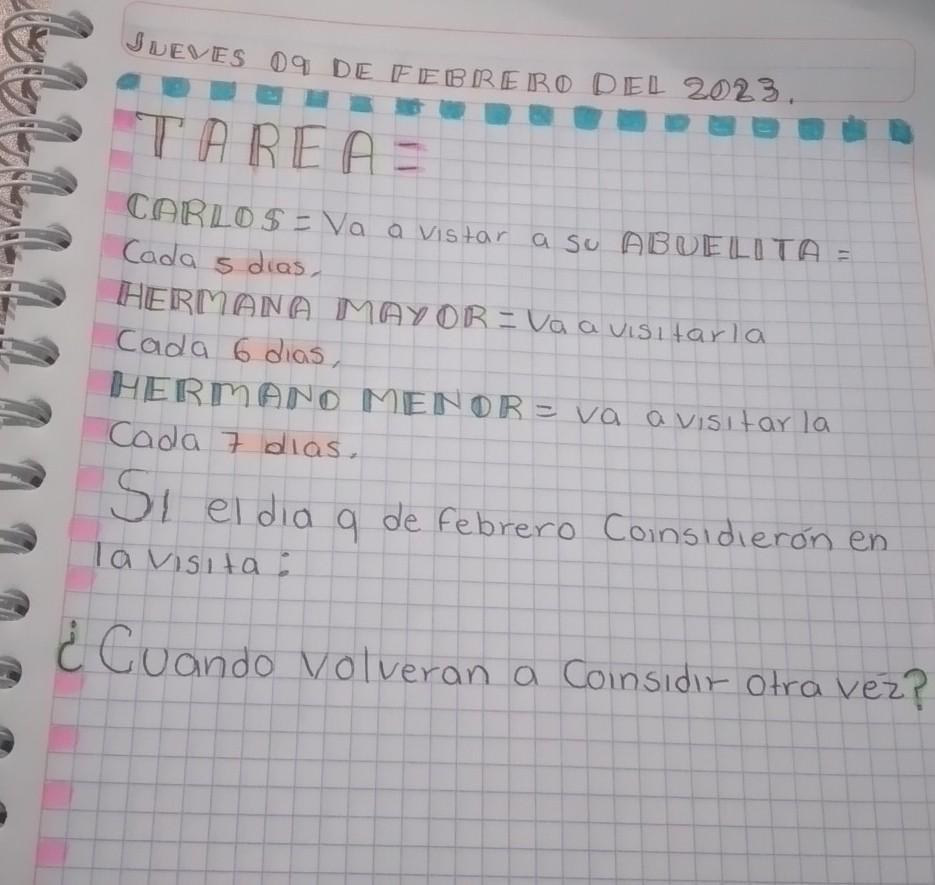 JUEVES 09 DE FEBRERO DEL 2023.
TAREA=
CARLOS = Va a vistar a su ABUELITA =
Cada 5 dias,
HERMANA MAYOR = Va a visitarla
Cada 6 dias,
HERMANO MENOR = va a visitarla
Cada 7 dias.
Si el dia 9 de febrero Coinsidierón en
la visita:
¿Cuando volveran a Coinsidir otra vez?